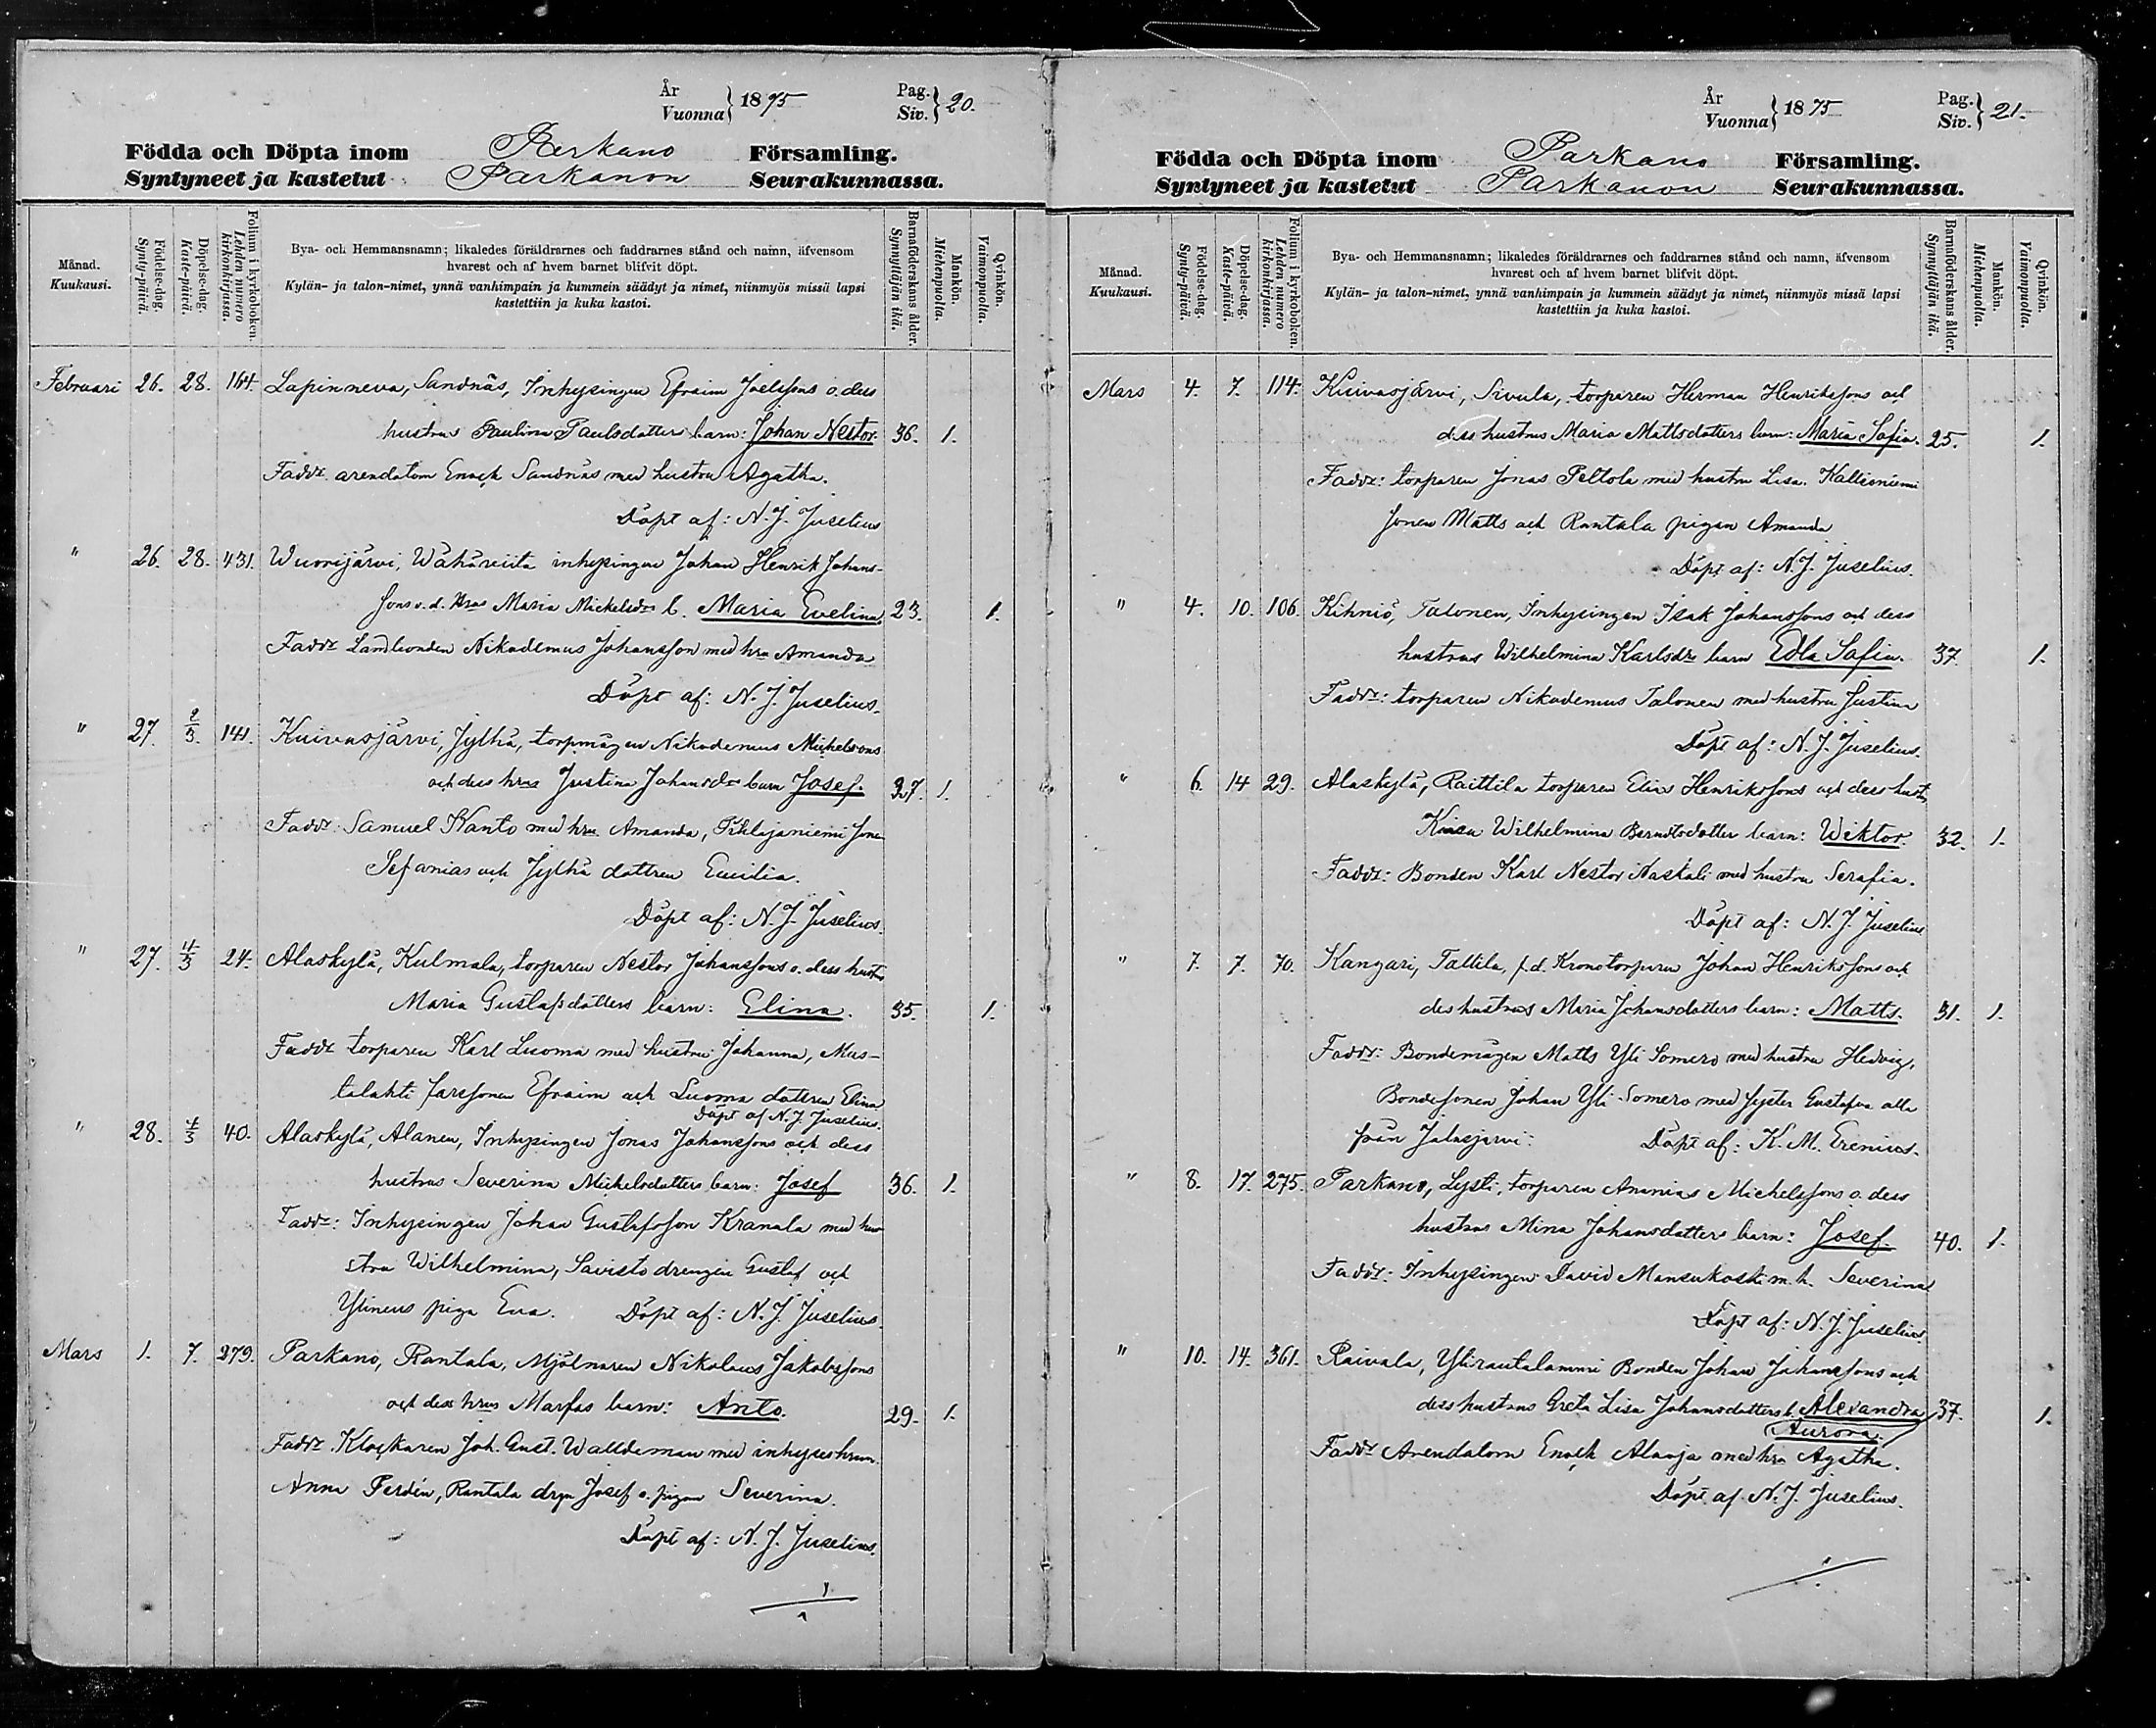 År
Vuonna } 1875
Pag.
Siv. } 20.
Födda och Döpta inom Parkano Församling.
Syntyneet ja kastetut Parkanon Seurakunnassa.
Månad.
Kuukausi.
Födelse-dag.
Synty-päivä.
Döpelse-dag.
Kaste-päivä.
Folium i kyrkoboken.
Lehden numero kirkonkirjassa.
Bya- och Hemmansnamn; likaledes föräldrarnes och faddrarnes stånd och namn, äfvensom
hvarest och af hvem barnet blifvit döpt.
Kylän- ja talon-nimet, ynnä vanhimpain ja kummein säädyt ja nimet, niinmyös missä lapsi
kastettiin ja kuka kastoi.
Barnaföderskans ålder.
Synnyttäjän ikä.
Mankön.
Miehenpuolia.
Qvinkön.
Vaimonpuolia.
Februari 26. 28. 164. Lapinneva, Sandnäs, Inhysingen Efraim Joelssons o. dess
hustrus Paulina Paulsdotters barn: Johan Nestor. 36. 1.
Faddr. arendatorn Enoch Sandnäs med hustru Agatha.
Döpt af: N. J. Juselius
" 26. 28. 431. Wuorijärvi, Wähäriita inhysingen Johan Henrik Johans-
sons o. d. hrus Maria Mickelsdrs b. Maria Evelina. 23. 1.
Faddr Landbonden Nikodemus Johansson med hru Amanda
Döpt af: N. J. Juselius.
" 27. 2/3. 141. Kuivasjärvi, Jylhä, torpmågen Nikodemus Michelssons
och dess hrus Justina Johansdrs barn Josef. 37. 1.
Faddr: Samuel Kanto med hru Amanda, Pihlajaniemi sonen
Sefanias och Jylhä dottren Emilia.
Döpt af: N. J. Juselius.
" 27. 4/3 24. Alaskylä, Kulmala, torparen Nestor Johanssons o. dess hustrus
Maria Gustafsdotters barn: Elina. 35. 1.
Faddr torparen Karl Luoma med hustru Johanna, Mus-
talahti farssonen Efraim och Luoma dottren Elina
Döpt af N. J. Juselius.
" 28. 4/3 40. Alaskylä, Alanen, Inhysingen Jonas Johanssons och dess
hustrus Severina Michelsdotters barn: Josef 36. 1.
Faddr: Inhysingen Johan Gustafsson Kranala med hu-
stru Wilhelmina, Savisto drengen Gustaf och
Ylinens piga Eva. Döpt af: N. J. Juselius.
Mars 1. 7. 279. Parkano, Rantala, Mjölnaren Nikolaus Jakobssons
och dess hrus Marfas barn: Anto. 29. 1.
Faddr. Klockaren Joh. Gust. Walldeman med inhyses hrun
Anna Ferdén, Rantala drgn Josef o. pigan Severina.
Döpt af: N. J. Juselius.
År
Vuonna } 1875
Pag.
Siv. } 21.
Födda och Döpta inom Parkano Församling.
Syntyneet ja kastetut Parkanon Seurakunnassa.
Månad.
Kuukausi.
Födelse-dag.
Synty-päivä.
Döpelse-dag.
Kaste-päivä.
Folium i kyrkoboken.
Lehden numero kirkonkirjassa.
Bya- och Hemmansnamn; likaledes föräldrarnes och faddrarnes stånd och namn, äfvensom
hvarest och af hvem barnet blifvit döpt.
Kylän- ja talon-nimet, ynnä vanhimpain ja kummein säädyt ja nimet, niinmyös missä lapsi
kastettiin ja kuka kastoi.
Barnaföderskans ålder.
Synnyttäjän ikä.
Mankön.
Miehenpuolia.
Qvinkön.
Vaimonpuolia.
Mars 4. 7. 114. Kuivasjärvi, Sivula, torparen Herman Henrikssons och
dess hustrus Maria Mattsdotters barn: Maria Sofia. 25. 1.
Faddr: torparen Jonas Peltola med hustru Lisa. Kallioniemi
sonen Matts och Rantala pigan Amanda
Döpt af: N. J. Juselius.
" 4. 10. 106. Kihniö, Talonen, Inhysingen Isak Johanssons och dess
hustrus Wilhelmina Karlsdrs barn Edla Sofia. 37. 1.
Faddr: torparen Nikodemus Talonen med hustru Justina
Döpt af: N. J. Juselius.
" 6. 14 29. Alaskylä, Raittila torparen Elias Henrikssons och dess hustrus
Wilhelmina Berndtsdotter barn: Wiktor. 32. 1.
Faddr: Bonden Karl Nestor Naskali med hustru Serafia.
Döpt af: N. J. Juselius
" 7. 7. 70. Kangari, Tallila, f.d. Kronotorparen Johan Henrikssons och
des hustrus Maria Johansdotters barn: Matts. 31. 1.
Faddr: Bondemågen Matts Yli Somero med hustru Hedvig,
Bondesonen Johan Yli-Somero med syster Gustafva alla
från Jalasjärvi: Döpt af: K. M. Erenius.
" 8. 17. 275. Parkano, Lysti, torparen Ananias Michelssons o. dess
hustrus Mina Johansdotters barn: Josef. 40. 1.
Faddr: Inhysingen David Mansukoski m. h. Severina
Döpt af: N. J. Juselius.
" 10. 14. 361. Raivala, Ylirautalammi Bonden Johan Johanssons och
dess hustrus Greta Lisa Johansdotters b. Alexandra 37. 1.
Aurora.
Faddr Arendatorn Enoch Alaoja med hru Agatha.
Döpt af N. J. Juselius.